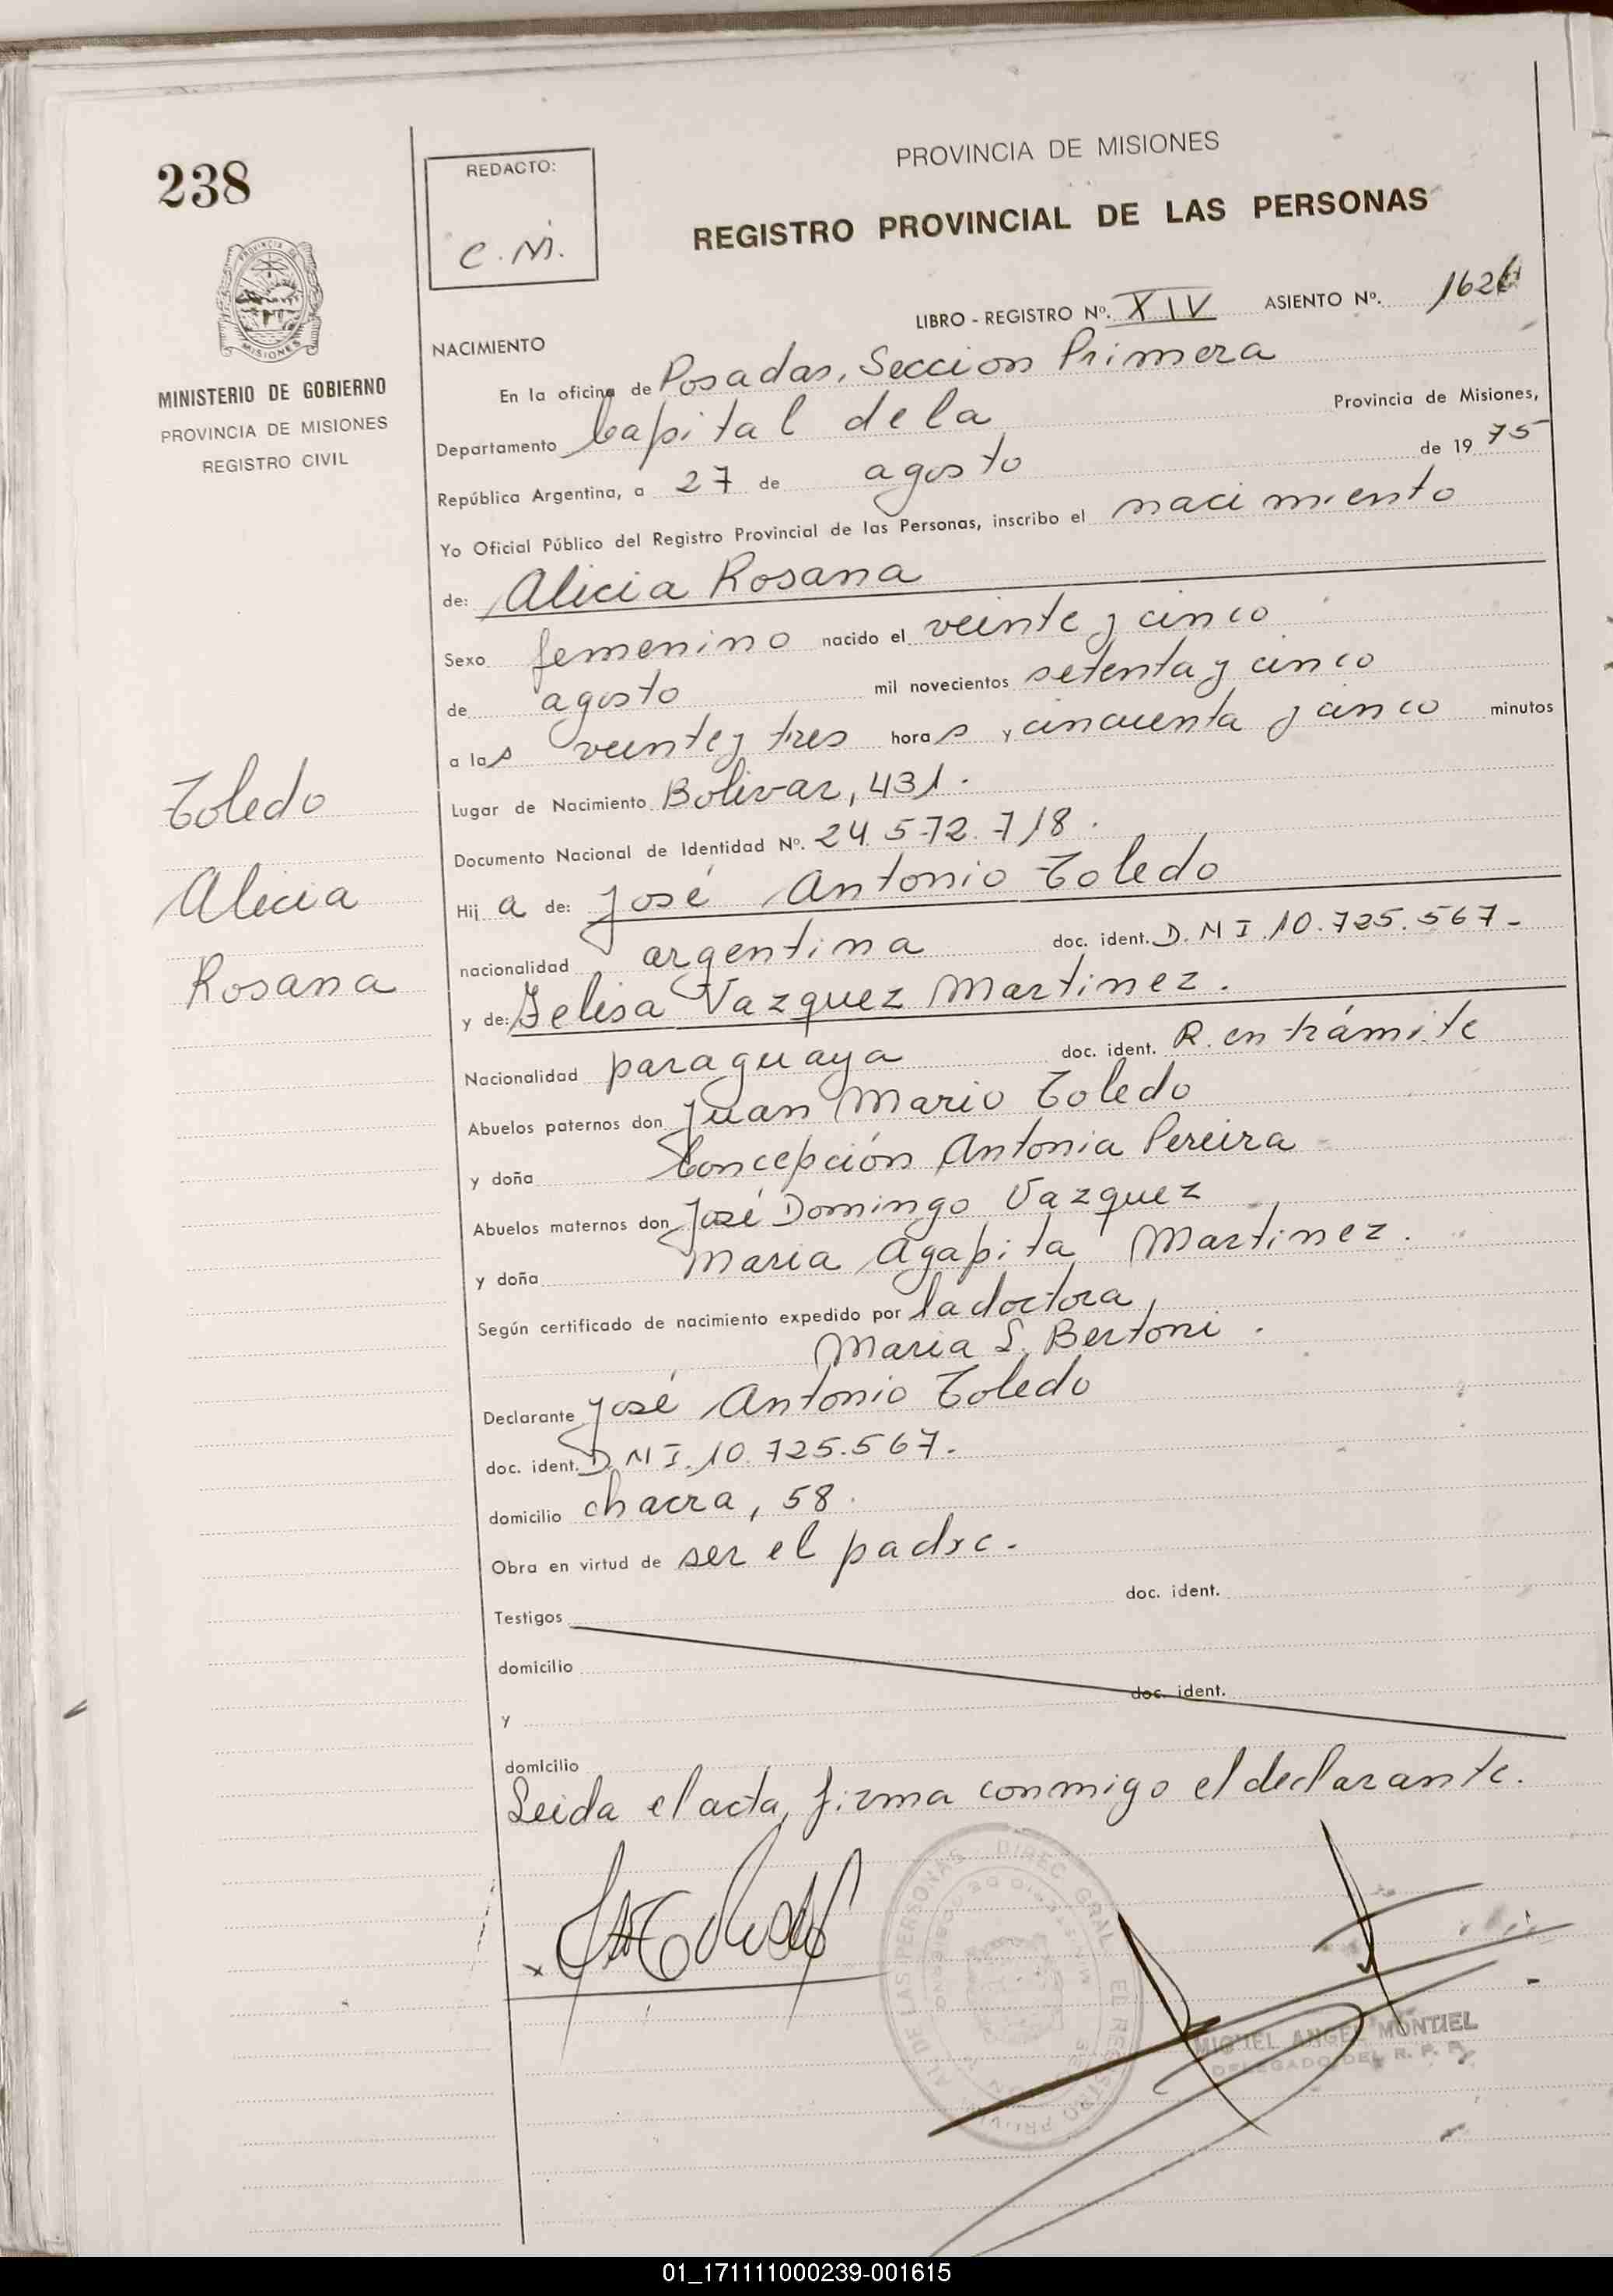 238
REDACTO:
C. M.
PROVINCIA DE MISIONES
REGISTRO PROVINCIAL DE LAS PERSONAS
LIBRO - REGISTRO Nº. XIV ASIENTO Nº. 1626
MINISTERIO DE GOBIERNO
PROVINCIA DE MISIONES
REGISTRO CIVIL
NACIMIENTO
En la oficina de Posadas, Seccion Primera
Departamento Capital de la Provincia de Misiones,
República Argentina, a 27 de agosto de 19 75
Yo Oficial Público del Registro Provincial de las Personas, inscribo el nacimiento
de: Alicia Rosana
Sexo femenino nacido el veinte y cinco
de agosto mil novecientos setenta y cinco
a las veinte y tres horas y cincuenta y cinco minutos
Lugar de Nacimiento Bolivar, 431.
Documento Nacional de Identidad Nº. 24.572.718.
Hija de: José Antonio Toledo
nacionalidad argentina doc. ident. D.N I. 10.725.567-
y de: Felisa Vazquez Martinez.
Nacionalidad paraguaya doc. ident. R. en trámite
Abuelos paternos don Juan Mario Toledo
y doña Concepción Antonia Pereira
Abuelos maternos don José Domingo Vazquez
y doña Maria Agapita Martinez.
Según certificado de nacimiento expedido por la doctora,
Maria S. Bertoni.
Declarante José Antonio Toledo
doc. ident. D. N I. 10.725.567.
domicilio chacra, 58.
Obra en virtud de ser el padre.
Testigos doc. ident.
domicilio
y doc. ident.
domicilio
Leida el acta, firma conmigo el declarante.
Toledo
Alicia
Rosana
MIGUEL ANGEL MONTIEL
DELEGADO DEL R. P. P.
01_171111000239-001615